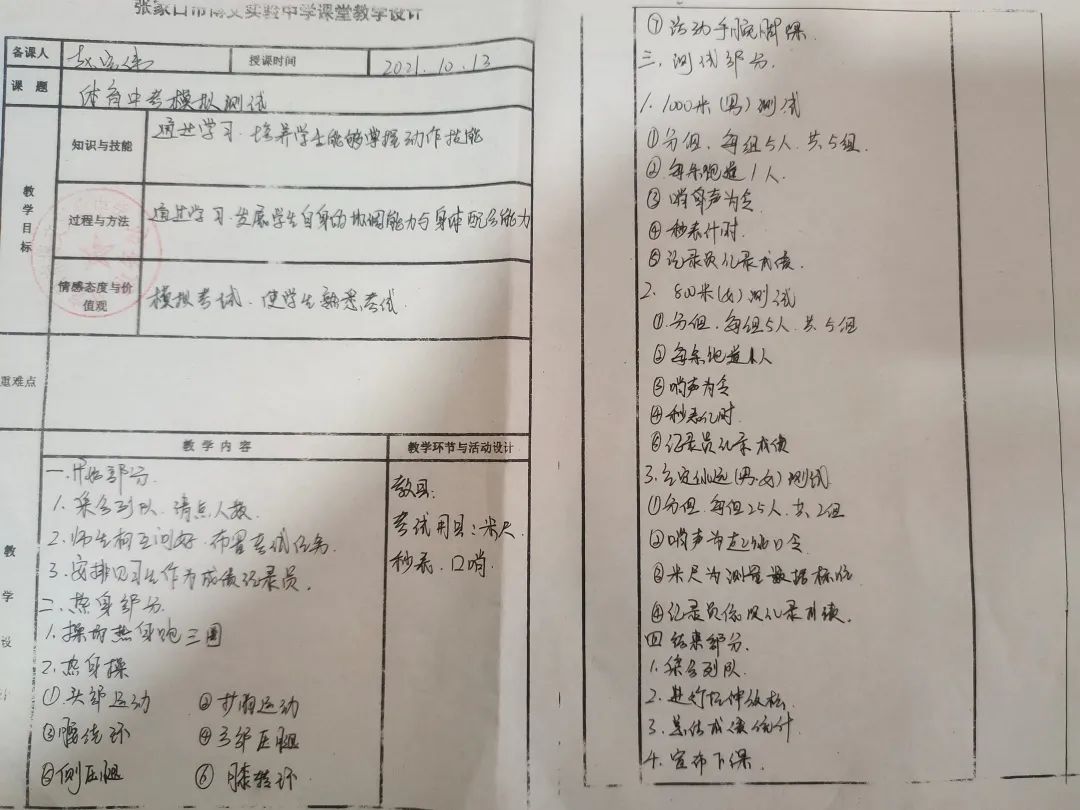 张家口市博文实验中学课堂教学设计
备课人
授课时间 2021.10.13
课 题 体育中考模拟测试
教学目标
知识与技能 通过学习.培养学生能够掌握动作技能
过程与方法 通过学习.发展学生自身的协调能力与身体配合能力
情感态度与价值观 模拟考试.使学生熟悉考试.
重难点
教 学 内 容 教学环节与活动设计
教 学 设
一.开始部分.
1.集合列队.清点人数.
2.师生相互问好.布置考试任务.
3.安排见习生作为成绩记录员.
二.热身部分.
1.操场热身跑三圈
2.热身操
①头部运动 ②扩胸运动
③腰绕环 ④弓步压腿
⑤侧压腿 ⑥膝绕环.
教具:
考试用具:米尺.
秒表.口哨.
⑦活动手腕脚踝.
三.测试部分.
1.1000米(男)测试
①分组.每组5人.共5组.
②每条跑道1人.
③哨声为令
④秒表计时.
⑤记录员记录成绩.
2.800米(女)测试
①分组.每组5人.共5组
②每条跑道1人
③哨声为令
④秒表记时.
⑤记录员记录成绩
3.立定跳远(男.女)测试
①分组.每组25人.共2组
②哨声为起跳口令.
③米尺为测量数据标准
④记录员依次记录成绩.
四 结束部分.
1.集合列队.
2.进行拉伸放松.
3.总结成绩统计.
4.宣布下课.